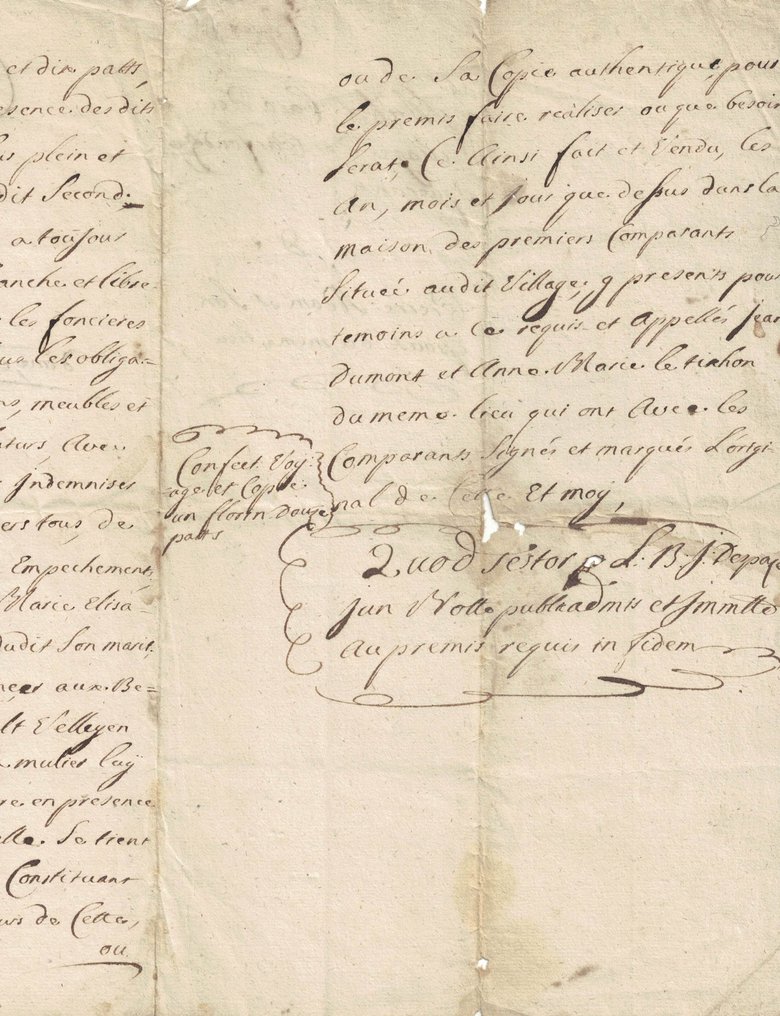 et dix patts,
esence des dits
us plein et
dit Second
a toûjour
anche et libre
les foncieres
us les obliga=
ns, meubles et
uturs, Avec
Indemniser
ers tous, de
Empechement,
Marie Elisa=
dudit Son marit,
ncer aux Be=
lt Velleyen
mulier laÿ
re, en presence
elle. Se tient
Constituant
urs de Cette,
ou
Confect. Voy=
age et Copie
un florin Douze
patts
ou de Sa Copie authentique, pour
le premis faire realiser ou que besoin
Serat, Ce Ainsi fait et Vendu, les
An, mois et jour que dessus dans la
maison des premiers Comparants
Située audit Village, presents pour
temoins a ce requis et Appellés Jean
Dumont et Anne Marie le
du meme lieu qui ont Avec les
Comparants Signés et marqués L'origi
nal de Cette Et moÿ,
Quod L. B. J.
jun Notte publ admis et Immtté
Au premis requis in fidem